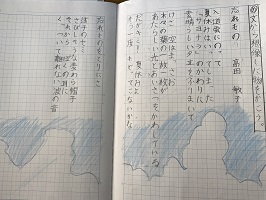 例文から想像し、物をかこう。
忘れもの　高田敏子
入道雲にのって
夏休みはいってしまった
「サヨナラ」のかわりに
素晴らしい夕立をふりまいて
けさ　空はまっさお
木々の葉の一枚一枚が
あたらしい光とあいさつをかわしている
だがキミ！　夏休みよ
もう一度　もどってこないかな
忘れものをとりにさ
迷子のセミ
さびしそうな麦わら帽子
それから　ぼくの耳に
くっついて離れない波の音